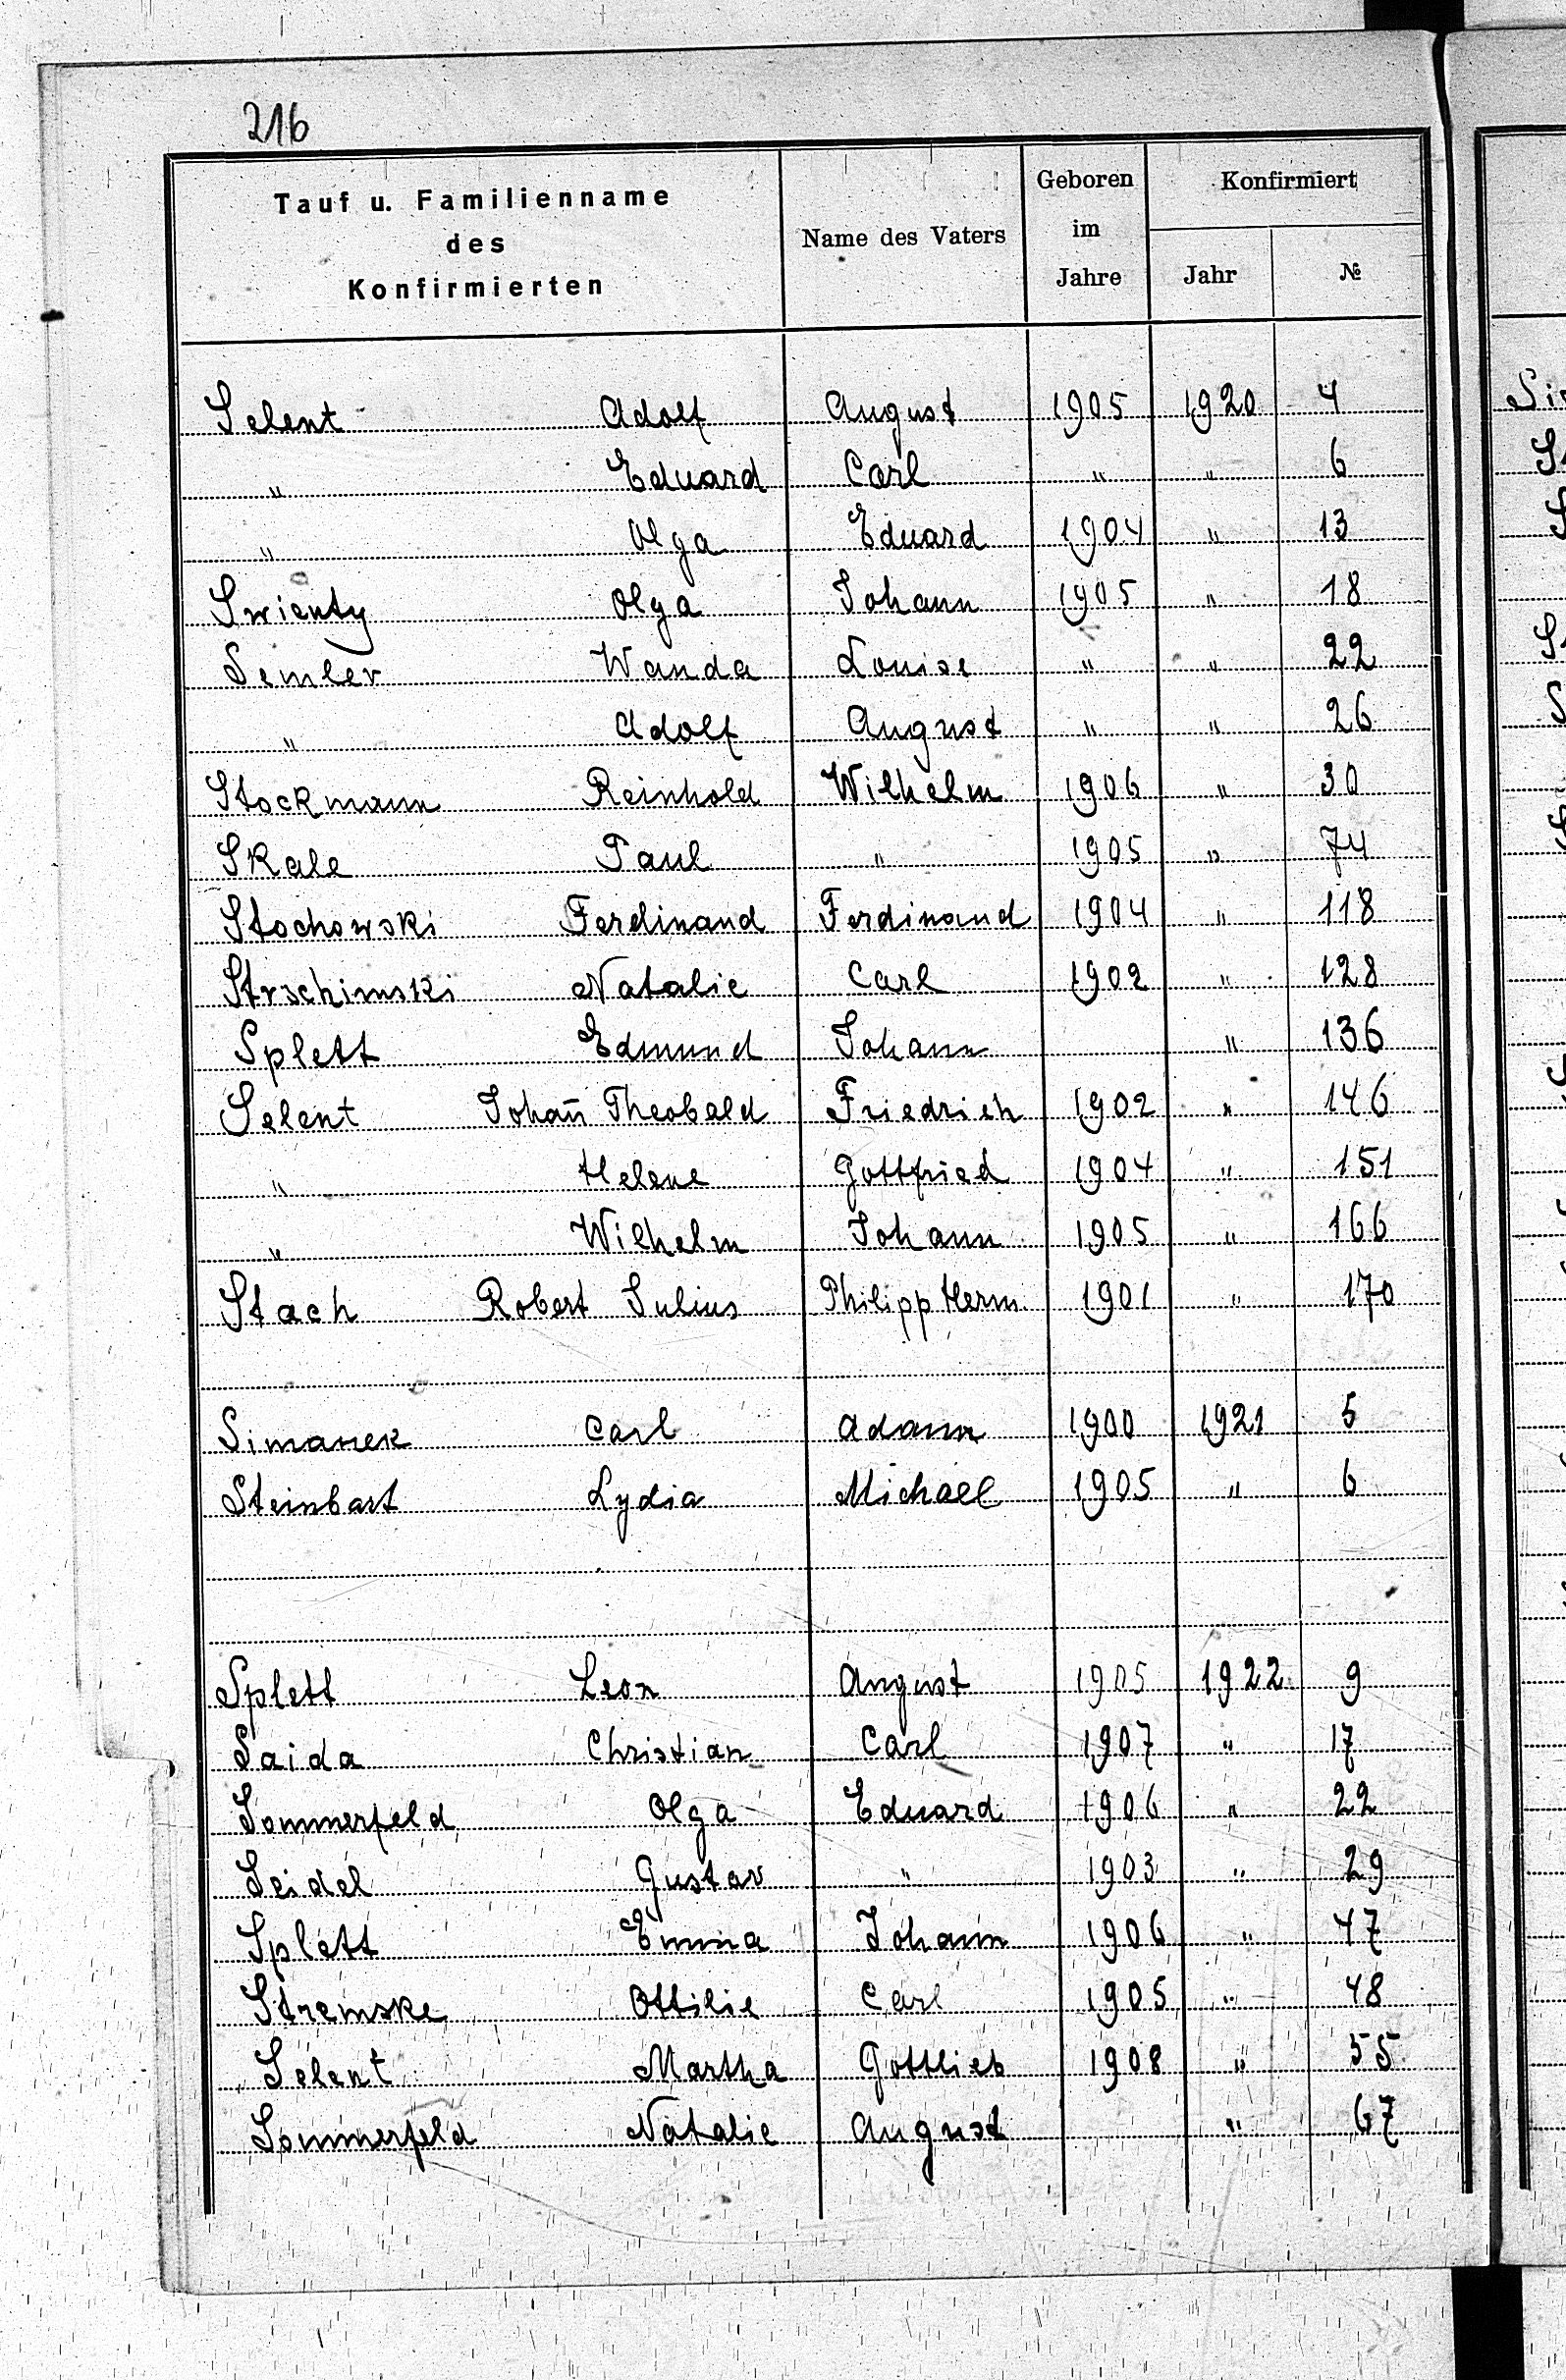 216
Tauf u. Familienname des Konfirmierten | Name des Vaters | Geboren im Jahre | Konfirmiert Jahr | №
Selent Adolf August 1905 1920 4
" Eduard Carl " " 6
" Olga Eduard 1904 " 13
Swienty Olga Johann 1905 " 18
Semler Wanda Louise " " 22
" Adolf August " " 26
Stockmann Reinhold Wilhelm 1906 " 30
Skale Paul " 1905 " 74
Stochowski Ferdinand Ferdinand 1904 " 118
Strschimski Natalie Carl 1902 " 128
Splett Edmund Johann " 136
Selent Johañ Theobald Friedrich 1902 " 146
" Helene Gottfried 1904 " 151
" Wilhelm Johann 1905 " 166
Stach Robert Julius Philipp Herm. 1901 " 170
Simanek Carl Adam 1900 1921 5
Steinbart Lydia Michael 1905 " 6
Splett Leon August 1905 1922 9
Saida Christian Carl 1907 " 17
Sommerfeld Olga Eduard 1906 " 22
Seidel Gustav " 1903 " 29
Splett Emma Johann 1906 " 47
Stremske Ottilie Carl 1905 " 48
Selent Martha Gottlieb 1908 " 55
Sommerfeld Natalie August " 67